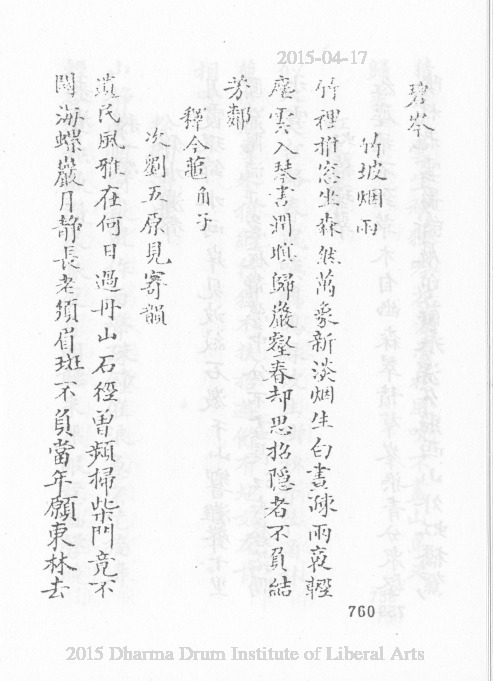 2015-04-17
碧岑
竹坡烟雨
竹裡推窓坐森然萬象新淡烟生白晝疎雨裛輕
塵雲入琴書潤暝歸巖壑春却思招隱者不負結
芳鄰
釋今
角子
次劉五原見寄韻
遺民風雅在何日過丹山石徑曾頻掃柴門竟不
關海螺巖月静長老須眉斑不負當年願東林去
760
2015 Dharma Drum Institute of Liberal Arts